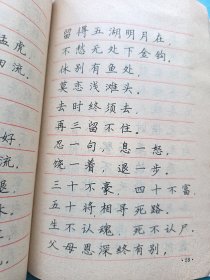 孟虎，
田流，
好，
流，
退，
留得五湖明月在，
不愁无处下金钩，
休别有鱼处，
莫恋浅滩头，
去时终须去，
再三留不住，
忍一句，息一怒，
饶一着，退一步，
三十不豪，四十不富，
五十将相寻死路，
生不认魂，死不认尸，
父母恩深终有别，
·25·